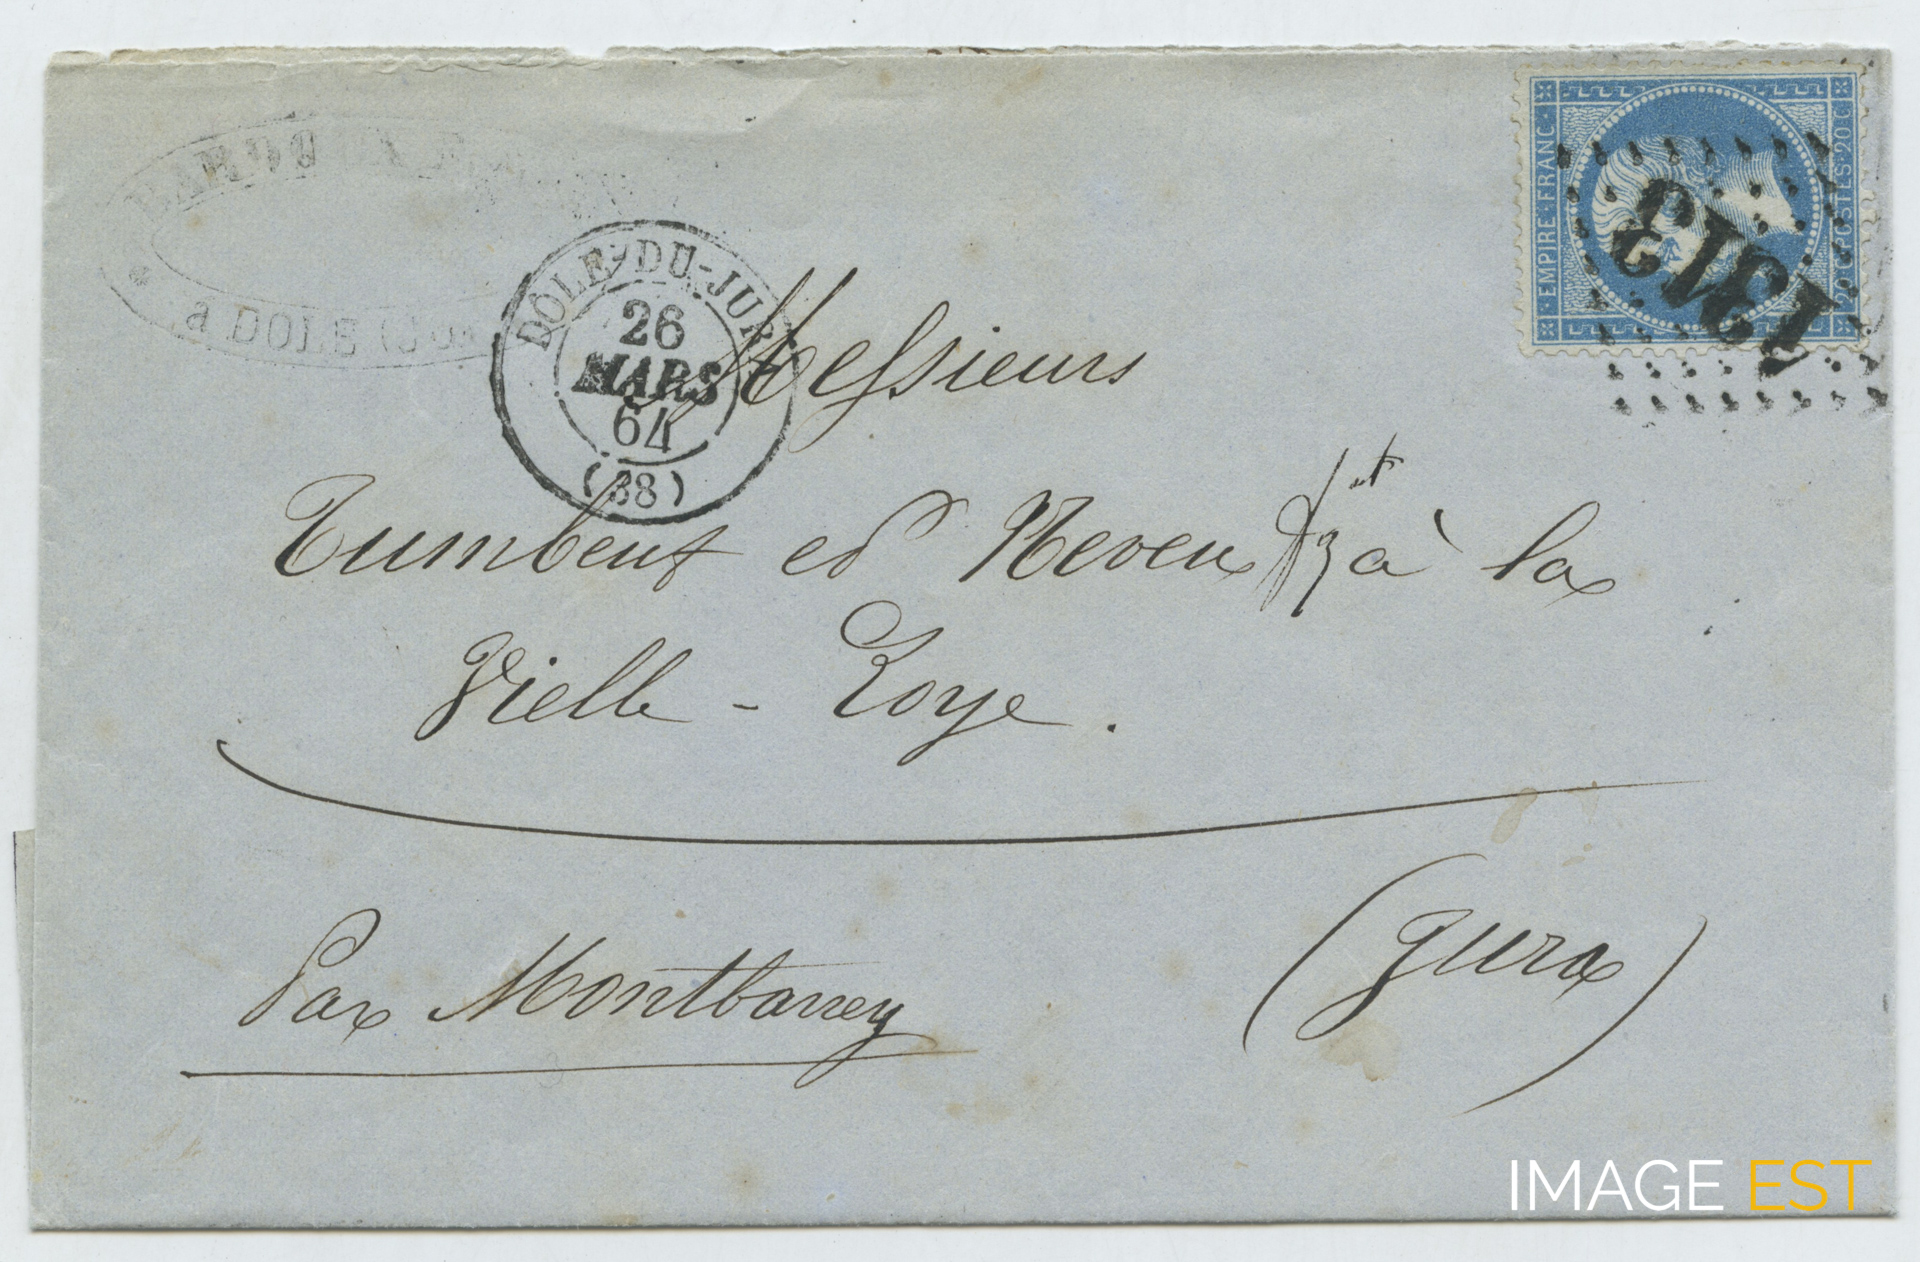 à DOLE
DÔLE-DU-JURA
26
MARS
64
(38)
EMPIRE·FRANC·
20 C POSTES 20 C
1313
Messieurs
Tumbeuf et Neveux à la
Vielle - Loye.
(Jura)
Par Montbarrey
IMAGE EST